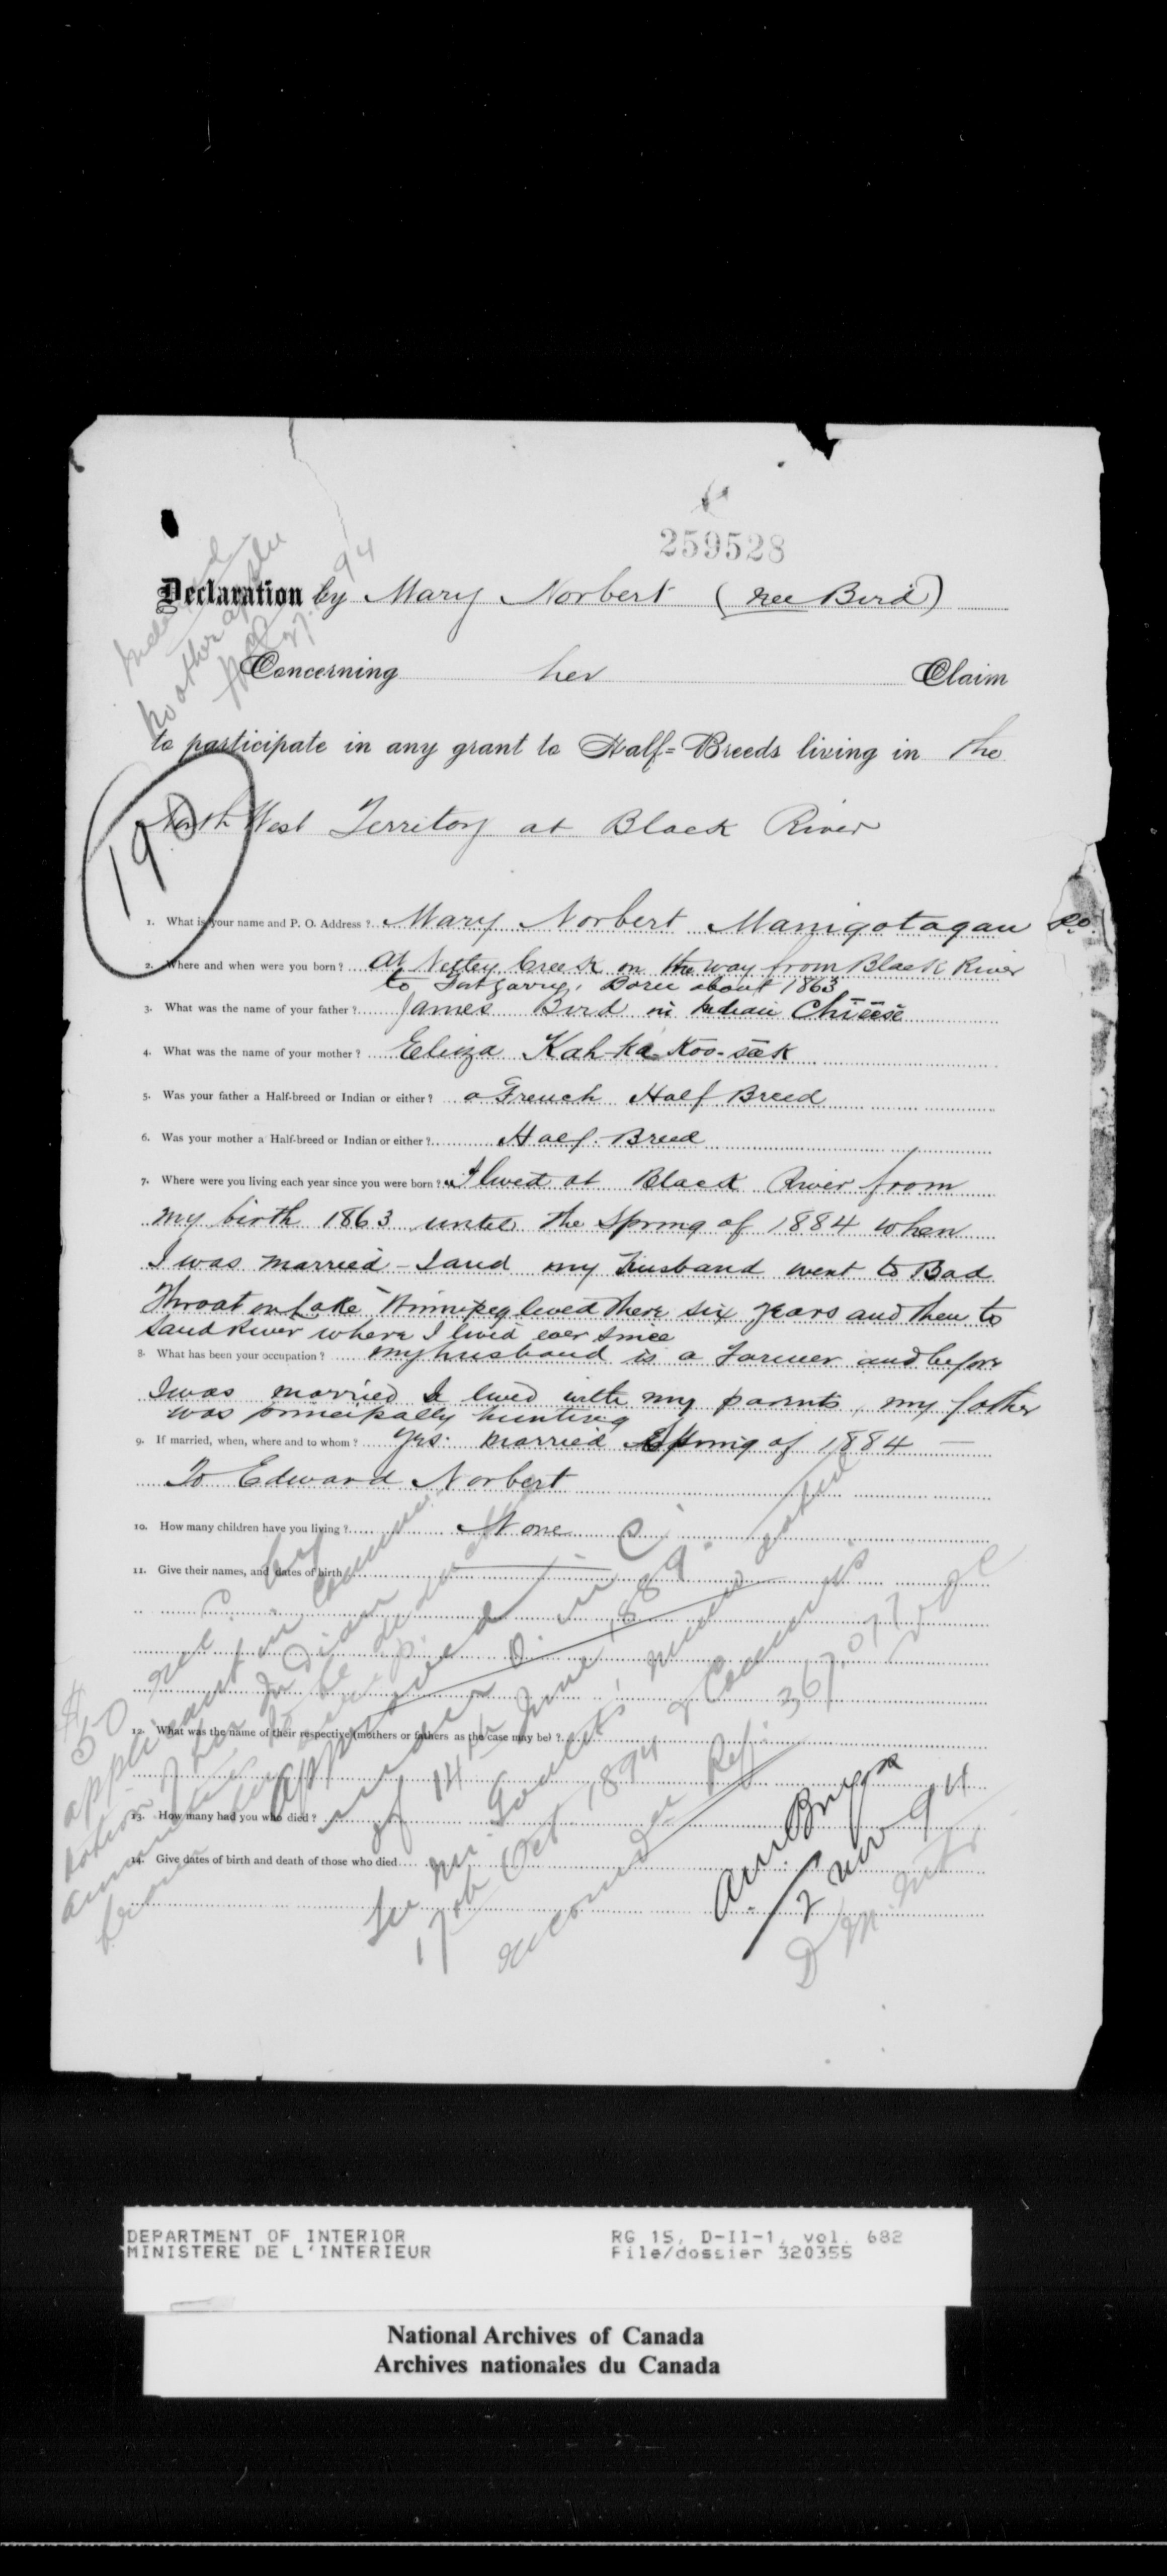 259528
Declaration by Mary Norbert (nee Bird)
Concerning her Claim
to participate in any grant to Half-Breeds living in the
North West Territory at Black River
190
1. What is your name and P. O. Address? Mary Norbert Manigotagan P.O.
2. Where and when were you born? At Netley Creek on the way from Black River
to Fort Garry, Born about 1863
3. What was the name of your father? James Bird in Indian
4. What was the name of your mother? Eliza Kah-ka-koo-sak
5. Was your father a Half-breed or Indian or either? a French Half Breed
6. Was your mother a Half-breed or Indian or either? Half-Breed
7. Where were you living each year since you were born? I lived at Black River from
my birth 1863 until the Spring of 1884 when
I was married - I and my husband went to Bad
Throat on Lake Winnipeg lived there six years and then to
Sand River where I lived ever since
8. What has been your occupation? my husband is a Farmer and before
I was married I lived with my parents, my father
was principally hunting
9. If married, when, where and to whom? Yes. Married Spring of 1884 —
To Edward Norbert
10. How many children have you living? None
11. Give their names, and dates of birth
12. What was the name of their respective (mothers or fathers as the case may be)?
13. How many had you who died?
14. Give dates of birth and death of those who died
approved
under O. in C.
of 14th June 1889.
17th Oct 1894
Ref: 367,077
94
DEPARTMENT OF INTERIOR
MINISTERE DE L'INTERIEUR
RG 15, D-II-1, vol. 682
File/dossier 320355
National Archives of Canada
Archives nationales du Canada